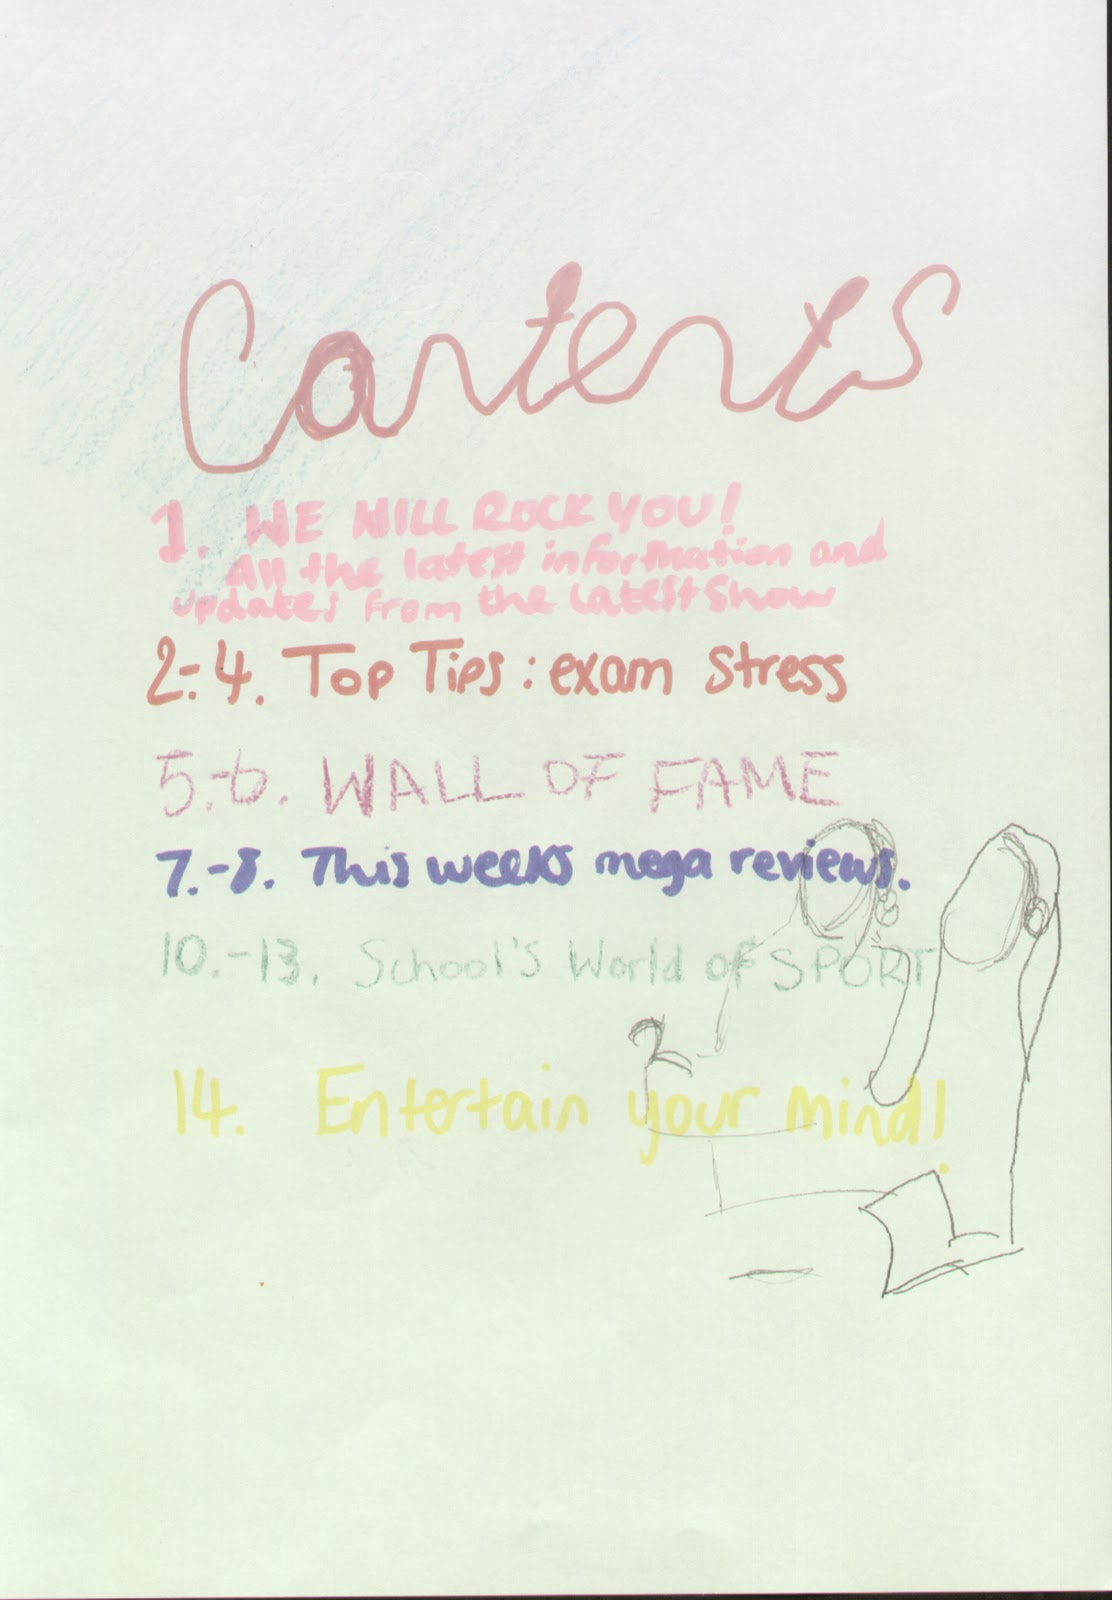 Contents
1. WE WILL ROCK YOU!
All the latest information and
updates from the latest Show
2-4. Top Tips: exam stress
5.-6. WALL OF FAME
7.-8. This weeks mega reviews.
10.-13. School's World of SPORT
14. Entertain your mind!